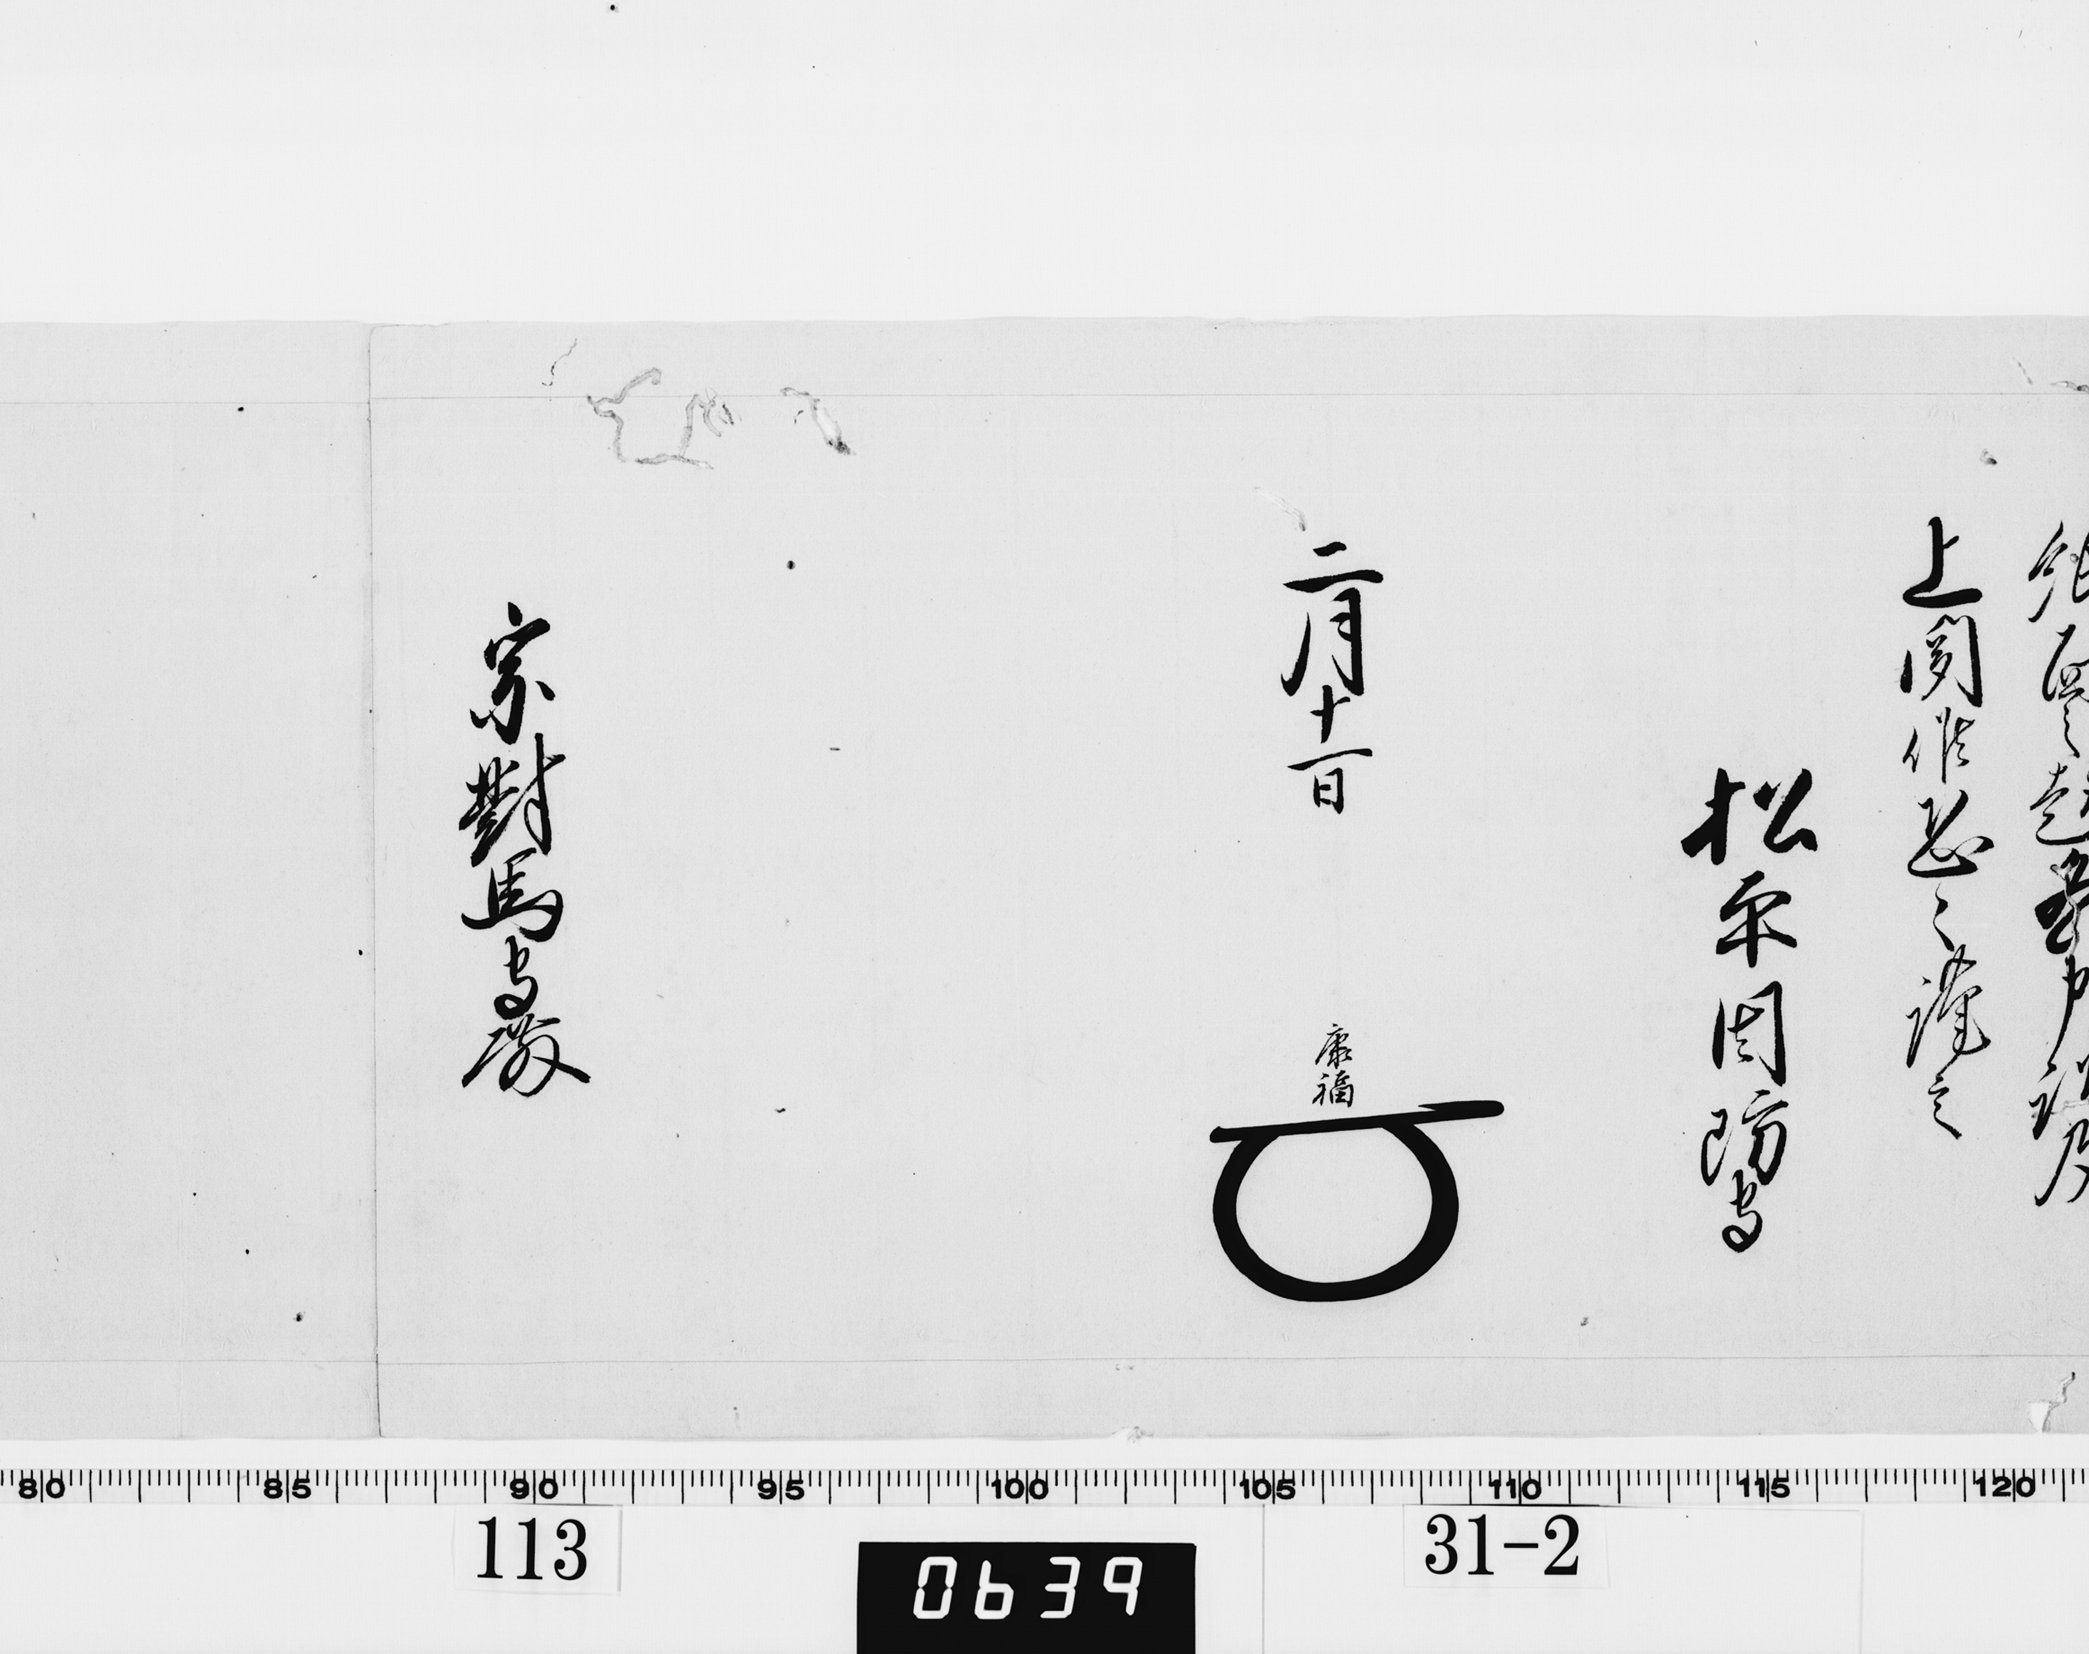 上聞候恐々謹言
松平周防守
二月十一日
康福
宗對馬守殿
80 85 90 95 100 105 110 115 120
113
0639
31-2